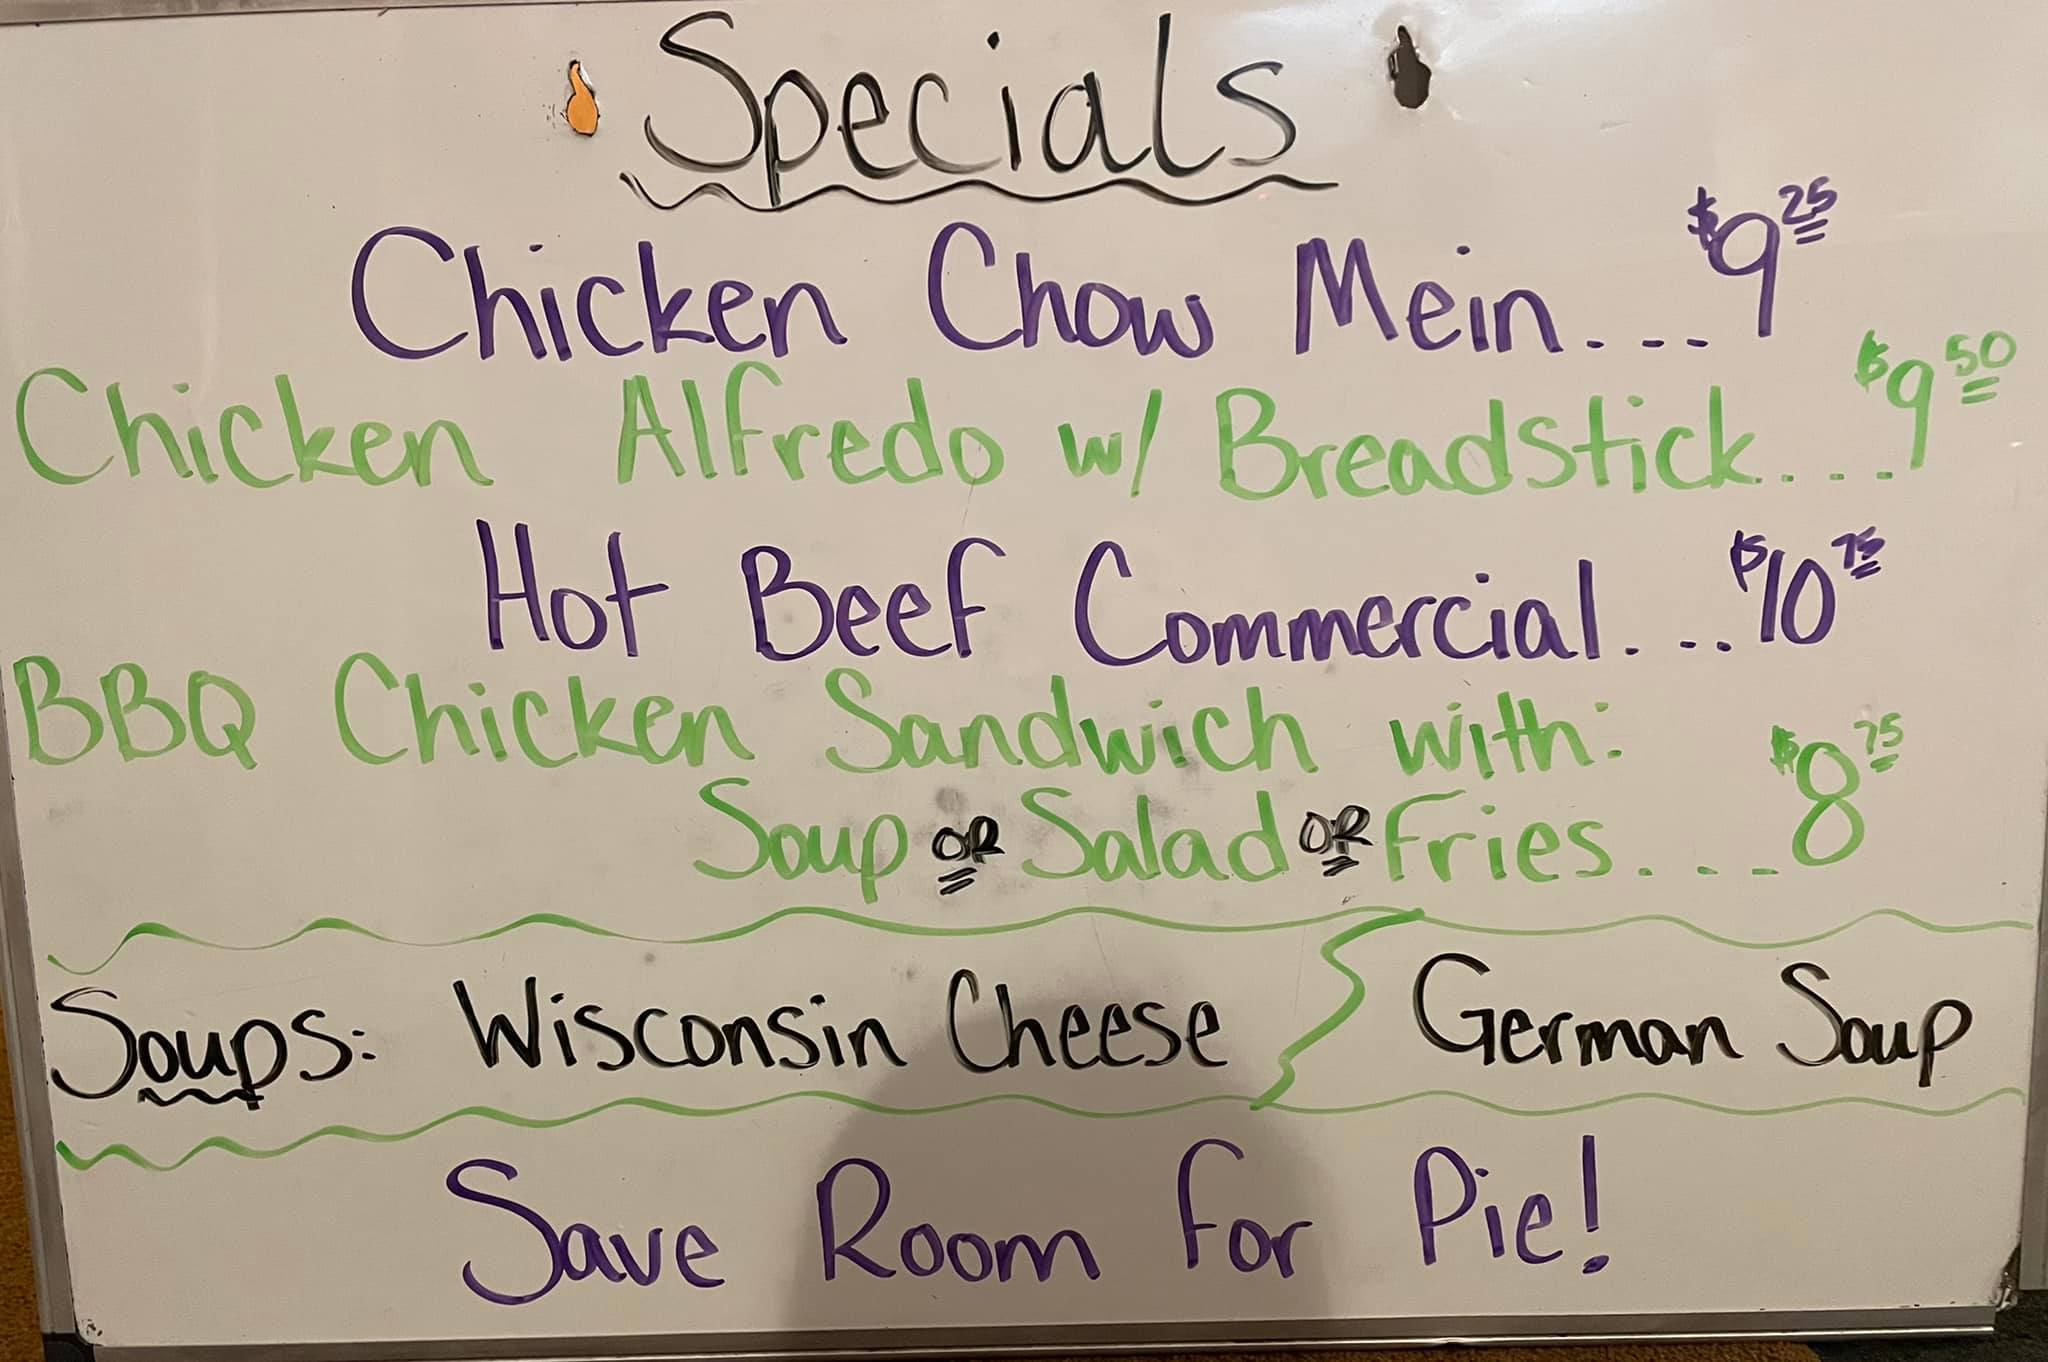 Specials
Chicken Chow Mein... $9 25
Chicken Alfredo w/ Breadstick.... $9 50
Hot Beef Commercial... $10 75
BBQ Chicken Sandwich with:
Soup OR Salad OR Fries.... $8 75
Soups: Wisconsin Cheese German Soup
Save Room For Pie!